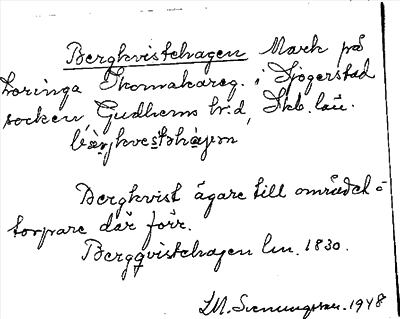 Bergkvistehagen Mark på
Loringa Skomakareg. i Sjogerstad
socken, Gudhems hrd, Skb. län.
bær̥kvestəhàgən
Bergkvist ägare till området o
torpare där förr.
Bergqvistehagen lm. 1830.
LM. Svenungsson. 1948